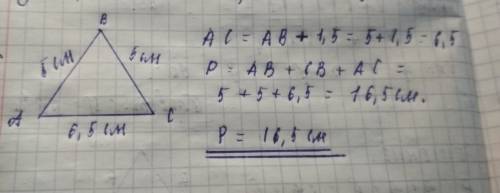 B
5 см
5 см
A
C
6,5 см
AC = AB + 1,5 = 5+1,5 = 6,5
P = AB + CB + AC =
5 + 5 + 6,5 = 16,5 см.
P = 16,5 см